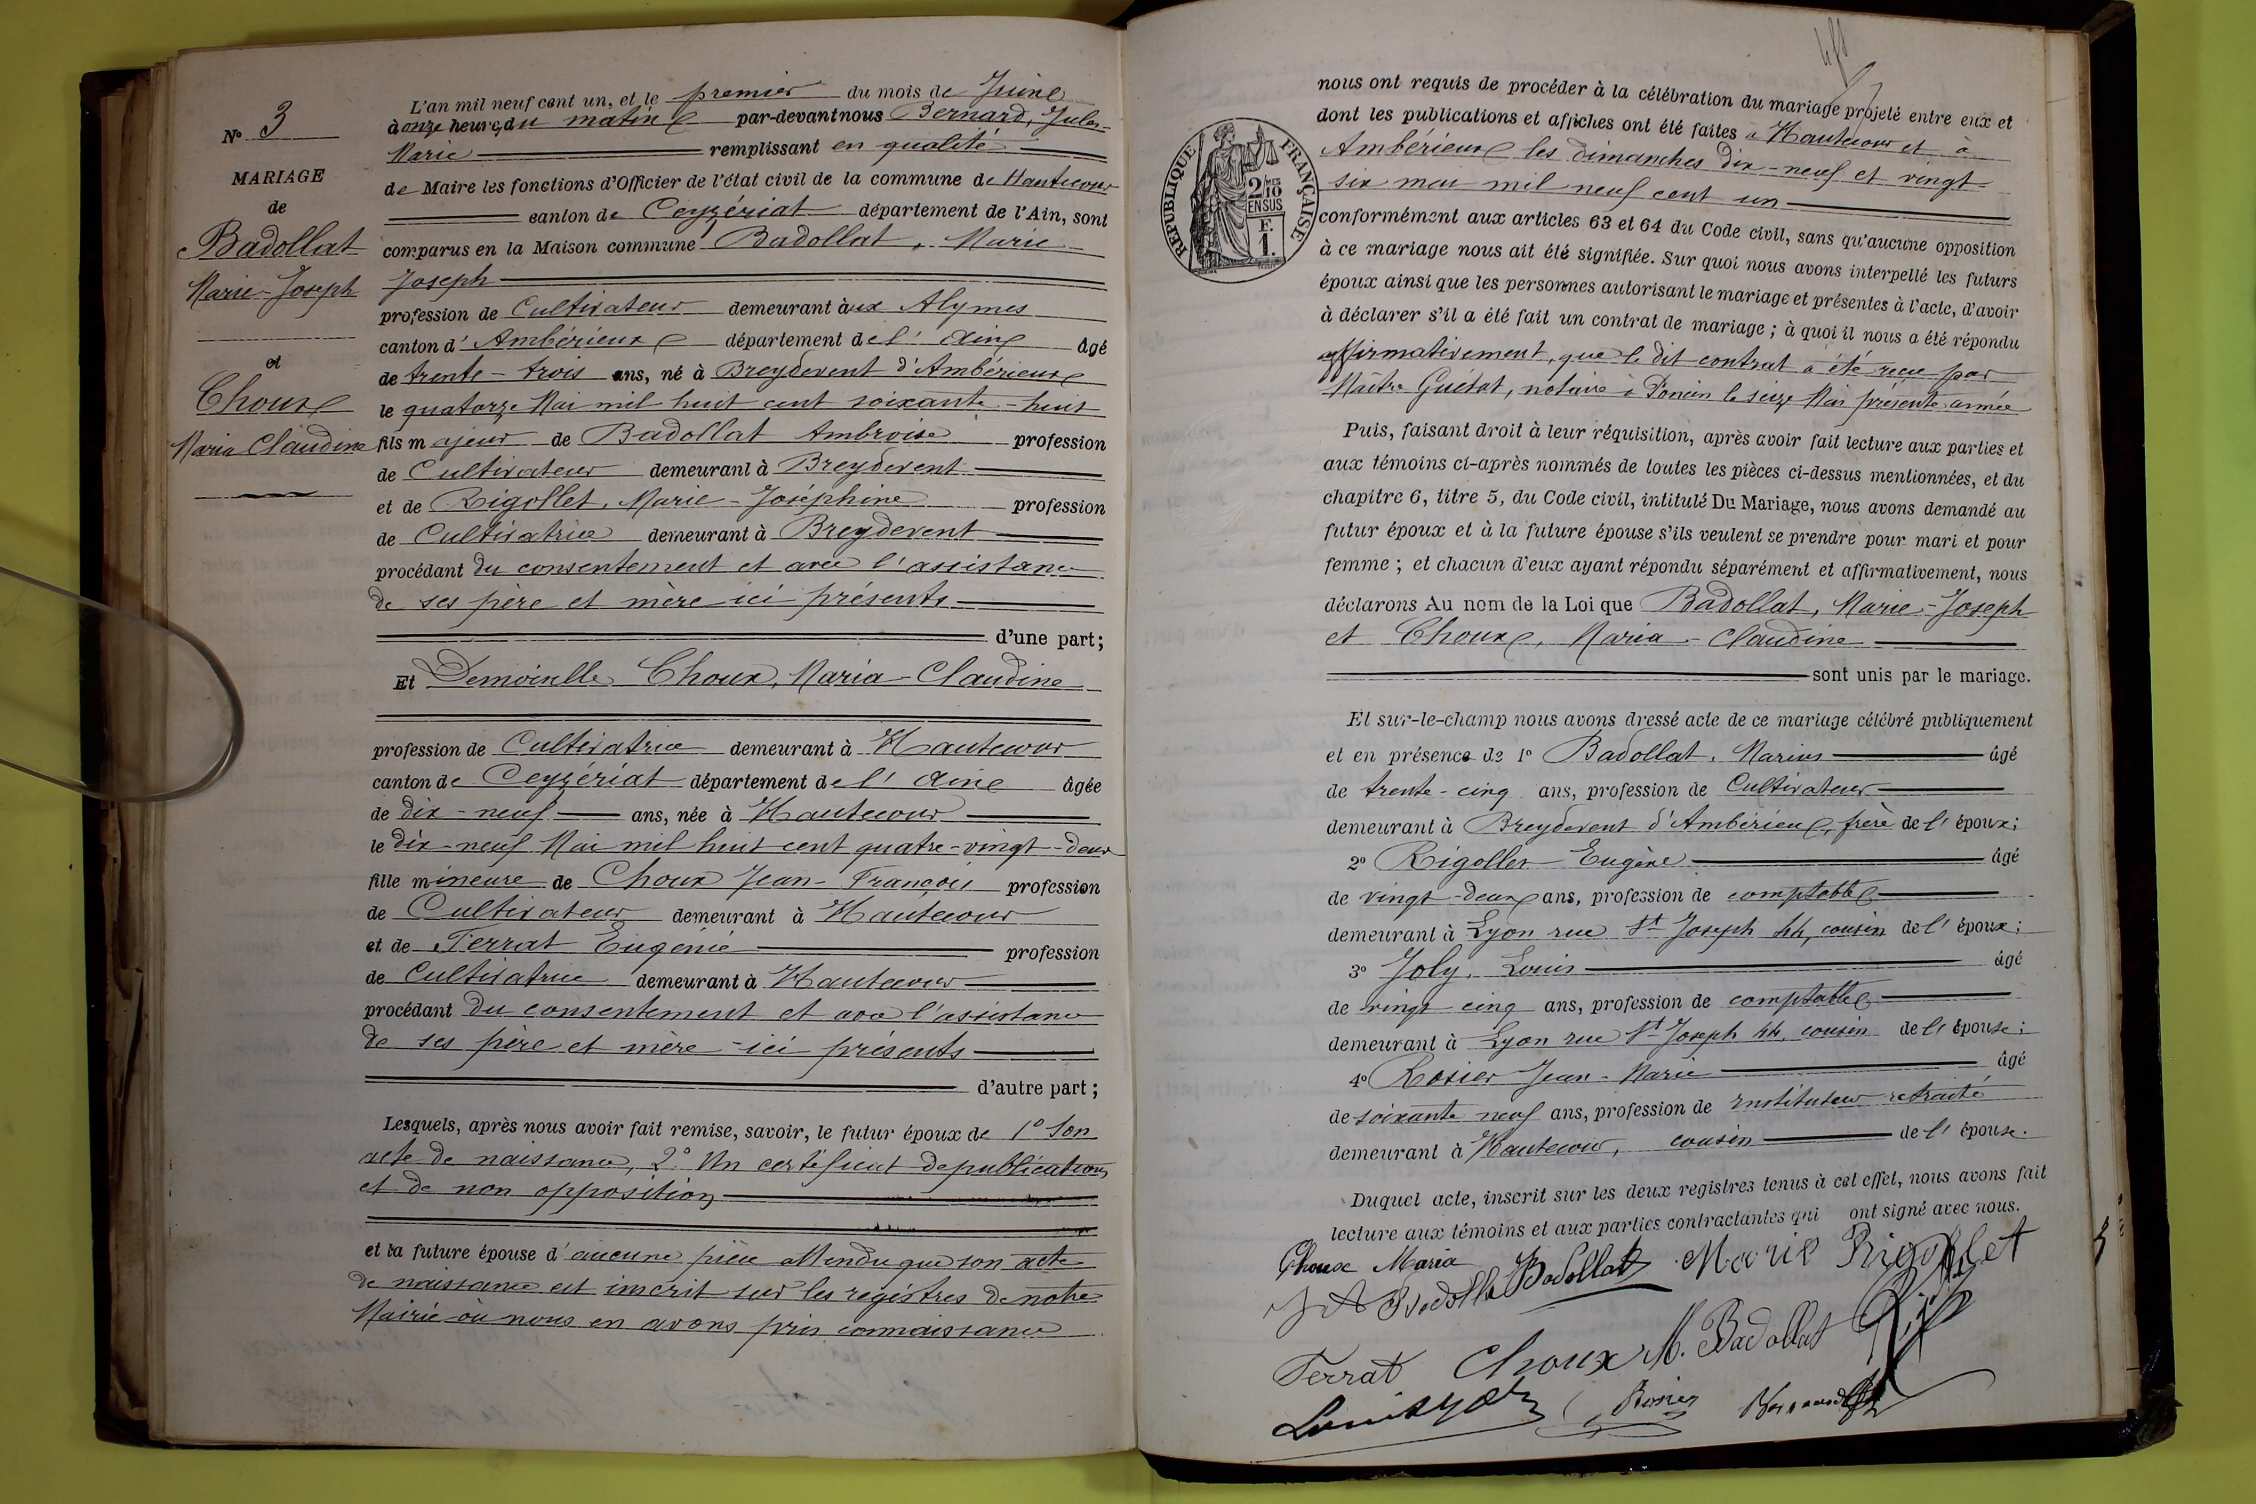 N° 3
MARIAGE
de
Badollat
Marie-Joseph
et
Choux
Maria Claudine
L'an mil neuf cent un, et le premier du mois de Juin
à onze heures du matin par-devant nous Bernard, Jules-
Marie remplissant en qualité
de Maire les fonctions d'Officier de l'état civil de la commune de Hautecour
canton de Ceyzériat département de l'Ain, sont
comparus en la Maison commune Badollat, Marie
Joseph
profession de Cultivateur demeurant aux Alymes
canton d'Ambérieux département de l'Ain âgé
de trente-trois ans, né à Breydevent d'Ambérieux
le quatorze Mai mil huit cent soixante-huit
fils majeur de Badollat Ambroise profession
de Cultivateur demeurant à Breydevent
et de Rigollet, Marie-Joséphine profession
de Cultivatrice demeurant à Breydevent
procédant du consentement et avec l'assistance
de ses père et mère ici présents
d'une part;
Et Demoiselle Choux, Maria-Claudine
profession de Cultivatrice demeurant à Hautecour
canton de Ceyzériat département de l'Ain âgée
de dix-neuf ans, née à Hautecour
le dix-neuf Mai mil huit cent quatre-vingt-deux
fille mineure de Choux Jean-François profession
de Cultivateur demeurant à Hautecour
et de Ferrat Eugénie profession
de Cultivatrice demeurant à Hautecour
procédant du consentement et avec l'assistance
de ses père et mère ici présents
d'autre part;
Lesquels, après nous avoir fait remise, savoir, le futur époux de 1° Son
acte de naissance, 2° Un certificat de publications
et de non opposition
et la future épouse d'aucune pièce attendu que son acte
de naissance est inscrit sur les registres de notre
Mairie où nous en avons pris connaissance
REPUBLIQUE FRANÇAISE
2/10 MES
EN SUS
F.
1.
nous ont requis de procéder à la célébration du mariage projeté entre eux et
dont les publications et affiches ont été faites à Hautecour et à
Ambérieux les dimanches dix-neuf et vingt-
six mai mil neuf cent un
conformément aux articles 63 et 64 du Code civil, sans qu'aucune opposition
à ce mariage nous ait été signifiée. Sur quoi nous avons interpellé les futurs
époux ainsi que les personnes autorisant le mariage et présentes à l'acte, d'avoir
à déclarer s'il a été fait un contrat de mariage; à quoi il nous a été répondu
affirmativement, que le dit contrat a été reçu par
Maître Guétat, notaire à Poncin le seize Mai présente année
Puis, faisant droit à leur réquisition, après avoir fait lecture aux parties et
aux témoins ci-après nommés de toutes les pièces ci-dessus mentionnées, et du
chapitre 6, titre 5, du Code civil, intitulé Du Mariage, nous avons demandé au
futur époux et à la future épouse s'ils veulent se prendre pour mari et pour
femme; et chacun d'eux ayant répondu séparément et affirmativement, nous
déclarons Au nom de la Loi que Badollat, Marie-Joseph
et Choux, Maria-Claudine
sont unis par le mariage.
Et sur-le-champ nous avons dressé acte de ce mariage célébré publiquement
et en présence de 1° Badollat, Marius âgé
de trente-cinq ans, profession de Cultivateur
demeurant à Breydevent d'Ambérieux, frère de l'époux;
2° Rigollet Eugène âgé
de vingt-deux ans, profession de comptable
demeurant à Lyon rue St Joseph 44, cousin de l'époux;
3° Joly, Louis âgé
de vingt cinq ans, profession de comptable
demeurant à Lyon rue St Joseph 44, cousin de l'épouse;
4° Rosier Jean-Marie âgé
de soixante neuf ans, profession de Instituteur retraité
demeurant à Hautecour, cousin de l'épouse.
Duquel acte, inscrit sur les deux registres tenus à cet effet, nous avons fait
lecture aux témoins et aux parties contractantes qui ont signé avec nous.
Choux Maria
Badollat Badollat Marie Rigollet
Ferrat Choux M. Badollat
Louis Joly Rosier Bernard